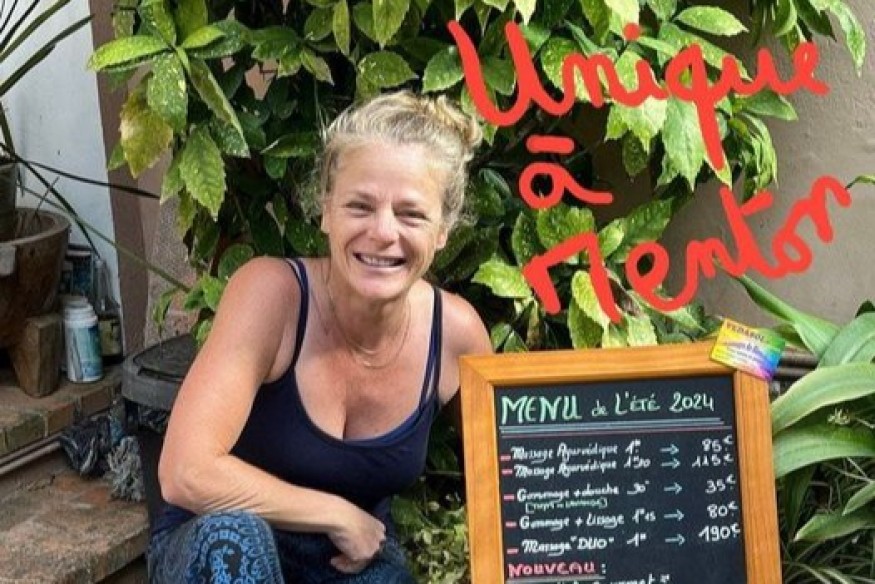 Unique
à
Menton
VEDASOL
MENU de L'ÉTÉ 2024
Massage Ayurvédique 1H → 85€
Massage Ayurvédique 1H30 → 115€
Gommage + douche 30' → 35€
Gommage + Lissage 1H15 → 80€
Massage "DUO" 1H → 190€
NOUVEAU :